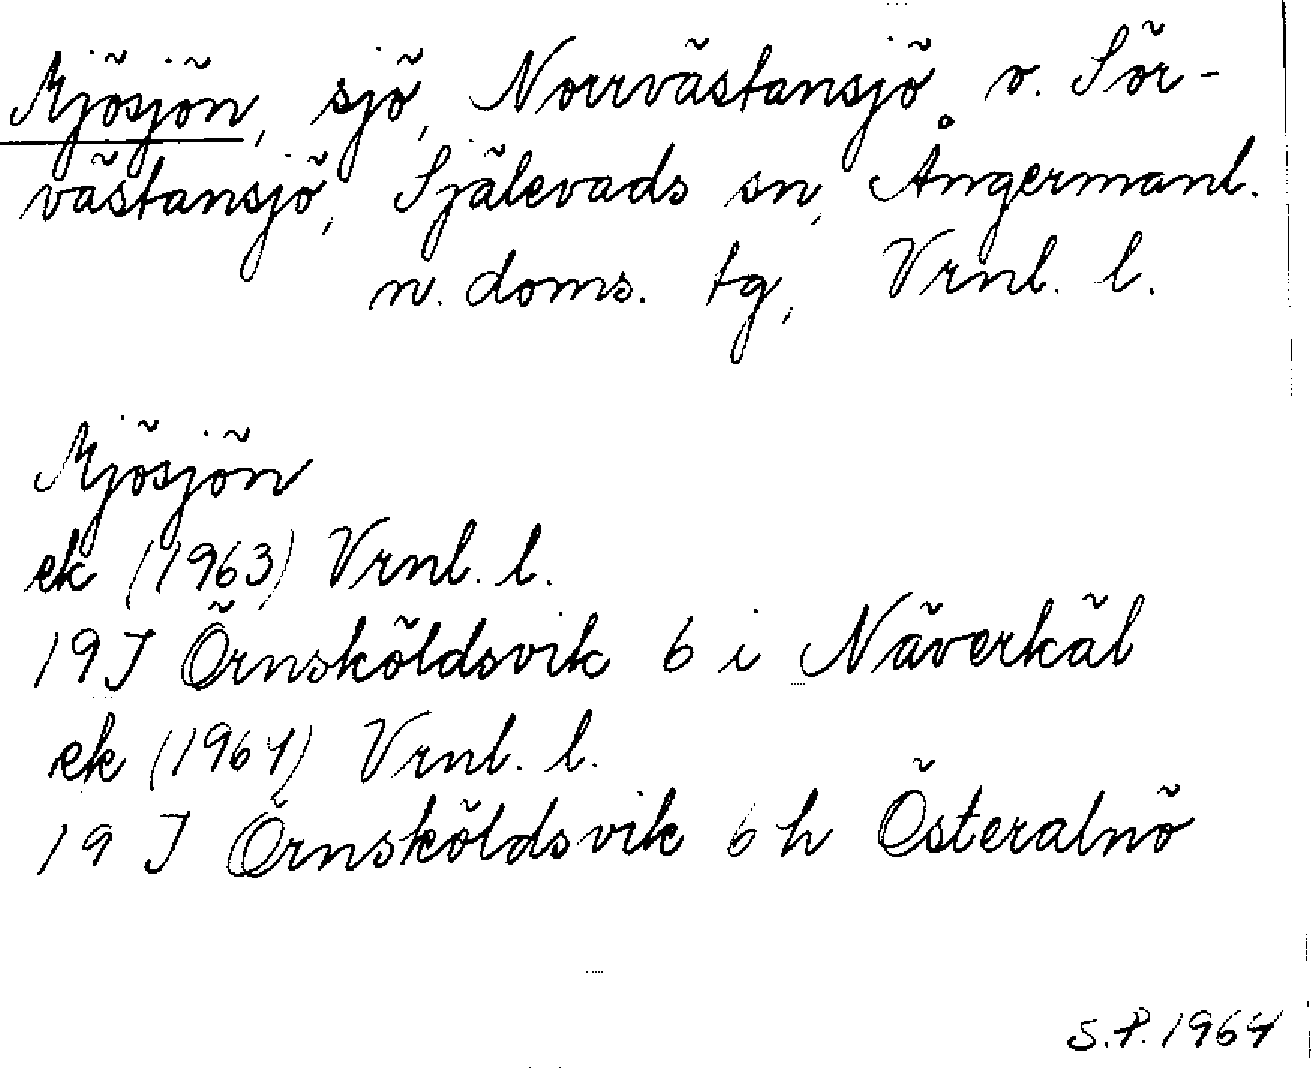 Mjösjön, sjö, Norrvästansjö o. Sör-
västansjö, Själevads sn, Ångermanl.
n. doms. tg, Vrnl. l.
Mjösjön
ek (1963) Vrnl. l.
19J Örnsköldsvik 6 i Näverkäl
ek (1964) Vrnl. l.
19 J Örnsköldsvik 6 h Österalnö
S.P. 1964